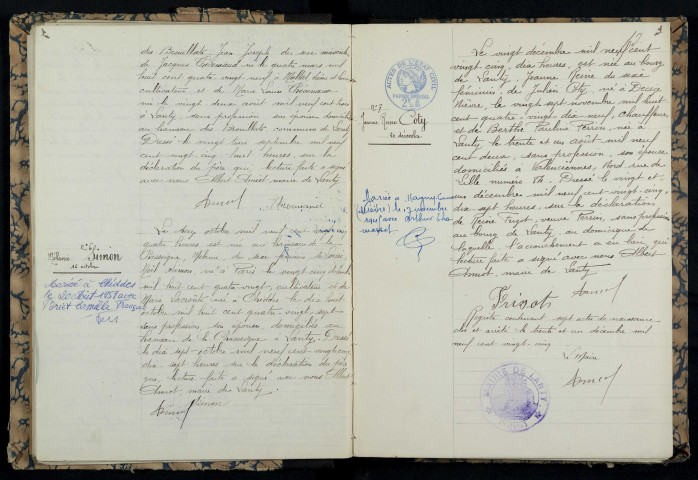 des Brouillats, Jean Joseph du sexe masculin
de Jacques né le quatre mars mil
huit cent quatre vingt neuf à
cultivateur et de Marie Louise
née le vingt deux avril mil neuf cent
à Lanty, sans profession son épouse domiciliés
au hameau des Brouillats commune de Lanty
Dressé le vingt septembre mil neuf
cent vingt cinq huit heures sur la
déclaration du père qui, lecture faite a signé
avec nous Albert Amiot maire de Lanty
Amiot
N° 6
Simon
16 octobre
Mariée à Chiddes
le 20 août 1951 avec
Le seize octobre mil neuf cent vingt cinq
quatre heures est née au hameau de la
du sexe féminin de
Simon né à Paris le vingt cinq
mil huit cent quatre vingt, cultivateur et de
Marie née à Chiddes le dix huit
octobre mil huit cent quatre vingt sept
sans profession, son épouse domiciliés au
hameau de la à Lanty. Dressé
le dix sept octobre mil neuf cent vingt cinq
dix sept heures sur la déclaration du père
qui, lecture faite a signé avec nous Albert
Amiot, maire de Lanty
Amiot Simon
ACTES DE L'ETAT CIVIL
PAPIER SPECIAL
N° 7
Jeanne Reine Coty
20 décembre
Mariée à Magny-Cours
(Nièvre) le 7 novembre
avec Arthur
Le vingt décembre mil neuf cent
vingt cinq, dix heures, est née au bourg
de Lanty, Jeanne Reine du sexe
féminin de Julien Coty, né à Decize
Nièvre, le vingt sept novembre mil huit
cent quatre vingt dix neuf, chauffeur
et de Berthe Pauline Perrin, née à
Lanty le trente et un août mil neuf
cent deux, sans profession, son épouse
domiciliés à Valenciennes, Nord, rue de
Lille numéro 84. Dressé le vingt et
un décembre mil neuf cent vingt cinq,
dix sept heures, sur la déclaration
de Frigot, veuve Perrin, sans profession
au bourg de Lanty, au domicile de
laquelle l'accouchement a eu lieu, qui
lecture faite a signé avec nous Albert
Amiot, maire de Lanty
Amiot
Frigot
Registre contenant sept actes de naissance
clos et arrêté le trente et un décembre mil
neuf cent vingt cinq
Le Maire
Amiot
MAIRIE DE LANTY